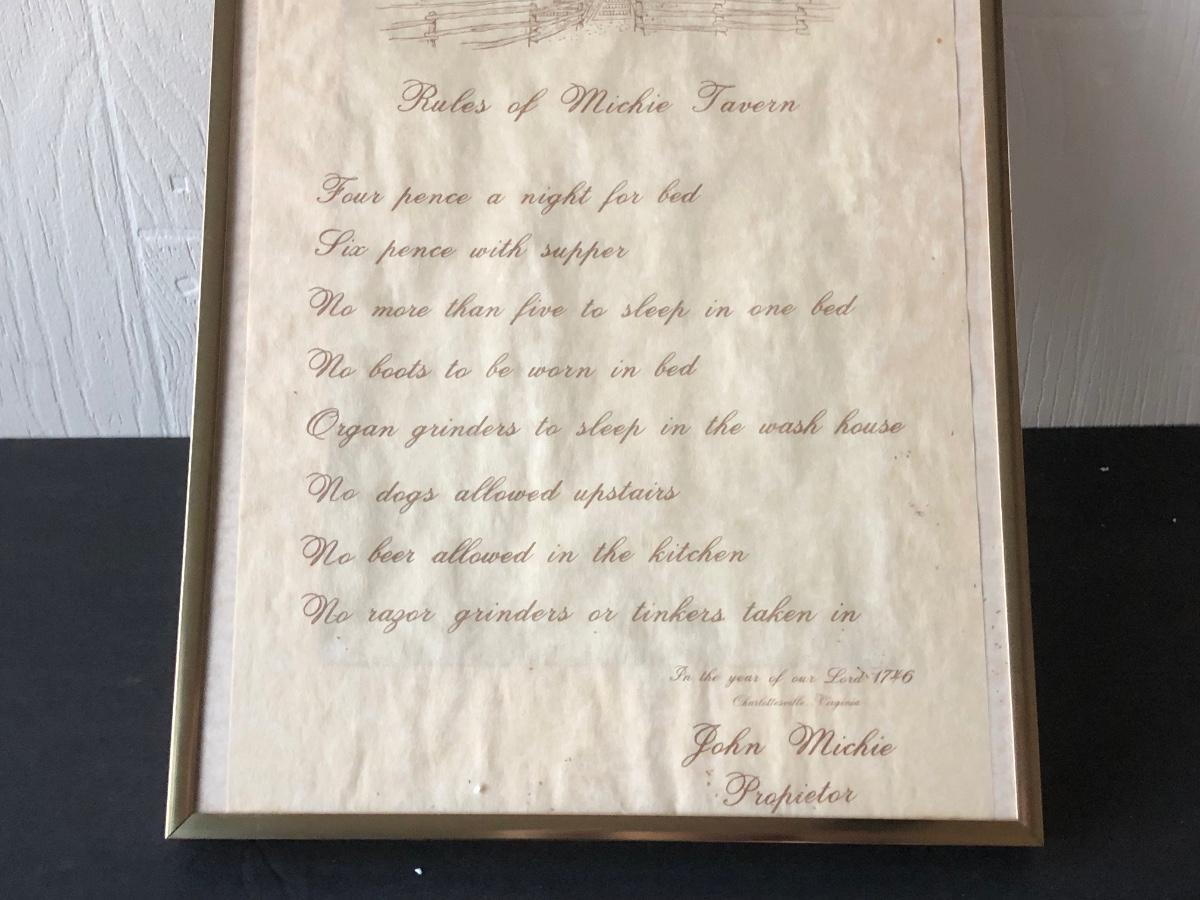 Rules of Michie Tavern
Four pence a night for bed
Six pence with supper
No more than five to sleep in one bed
No boots to be worn in bed
Organ grinders to sleep in the wash house
No dogs allowed upstairs
No beer allowed in the kitchen
No razor grinders or tinkers taken in
In the year of our Lord 1746
Charlottesville, Virginia
John Michie
Propietor